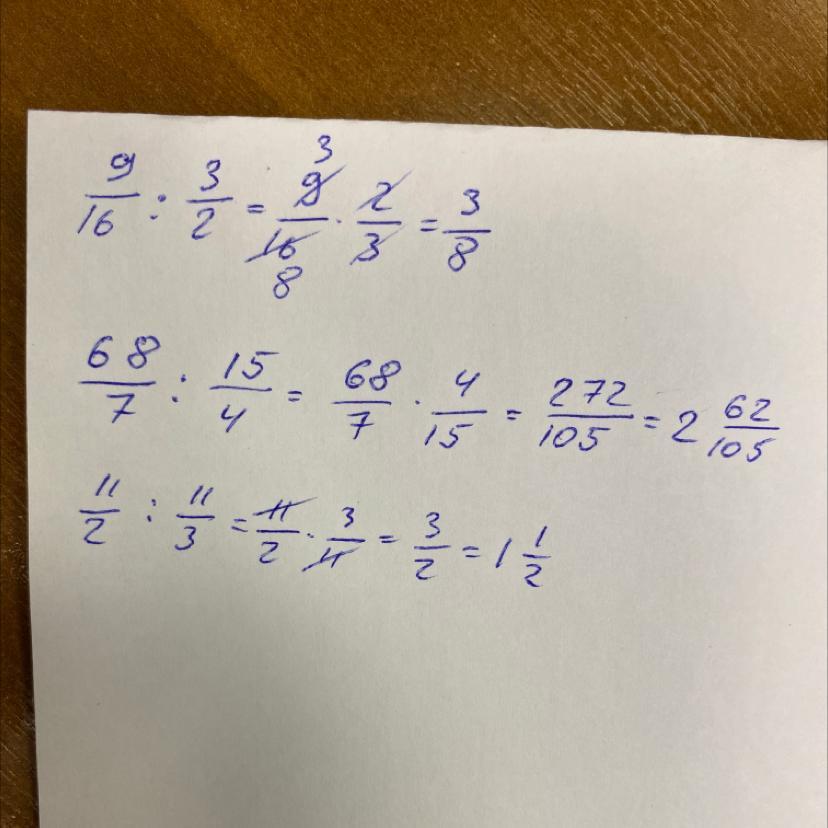 9/16 : 3/2 = 9/16 3 8 · 2/3 = 3/8
68/7 : 15/4 = 68/7 · 4/15 = 272/105 = 2 62/105
11/2 : 11/3 = 11/2 · 3/11 = 3/2 = 1 1/2